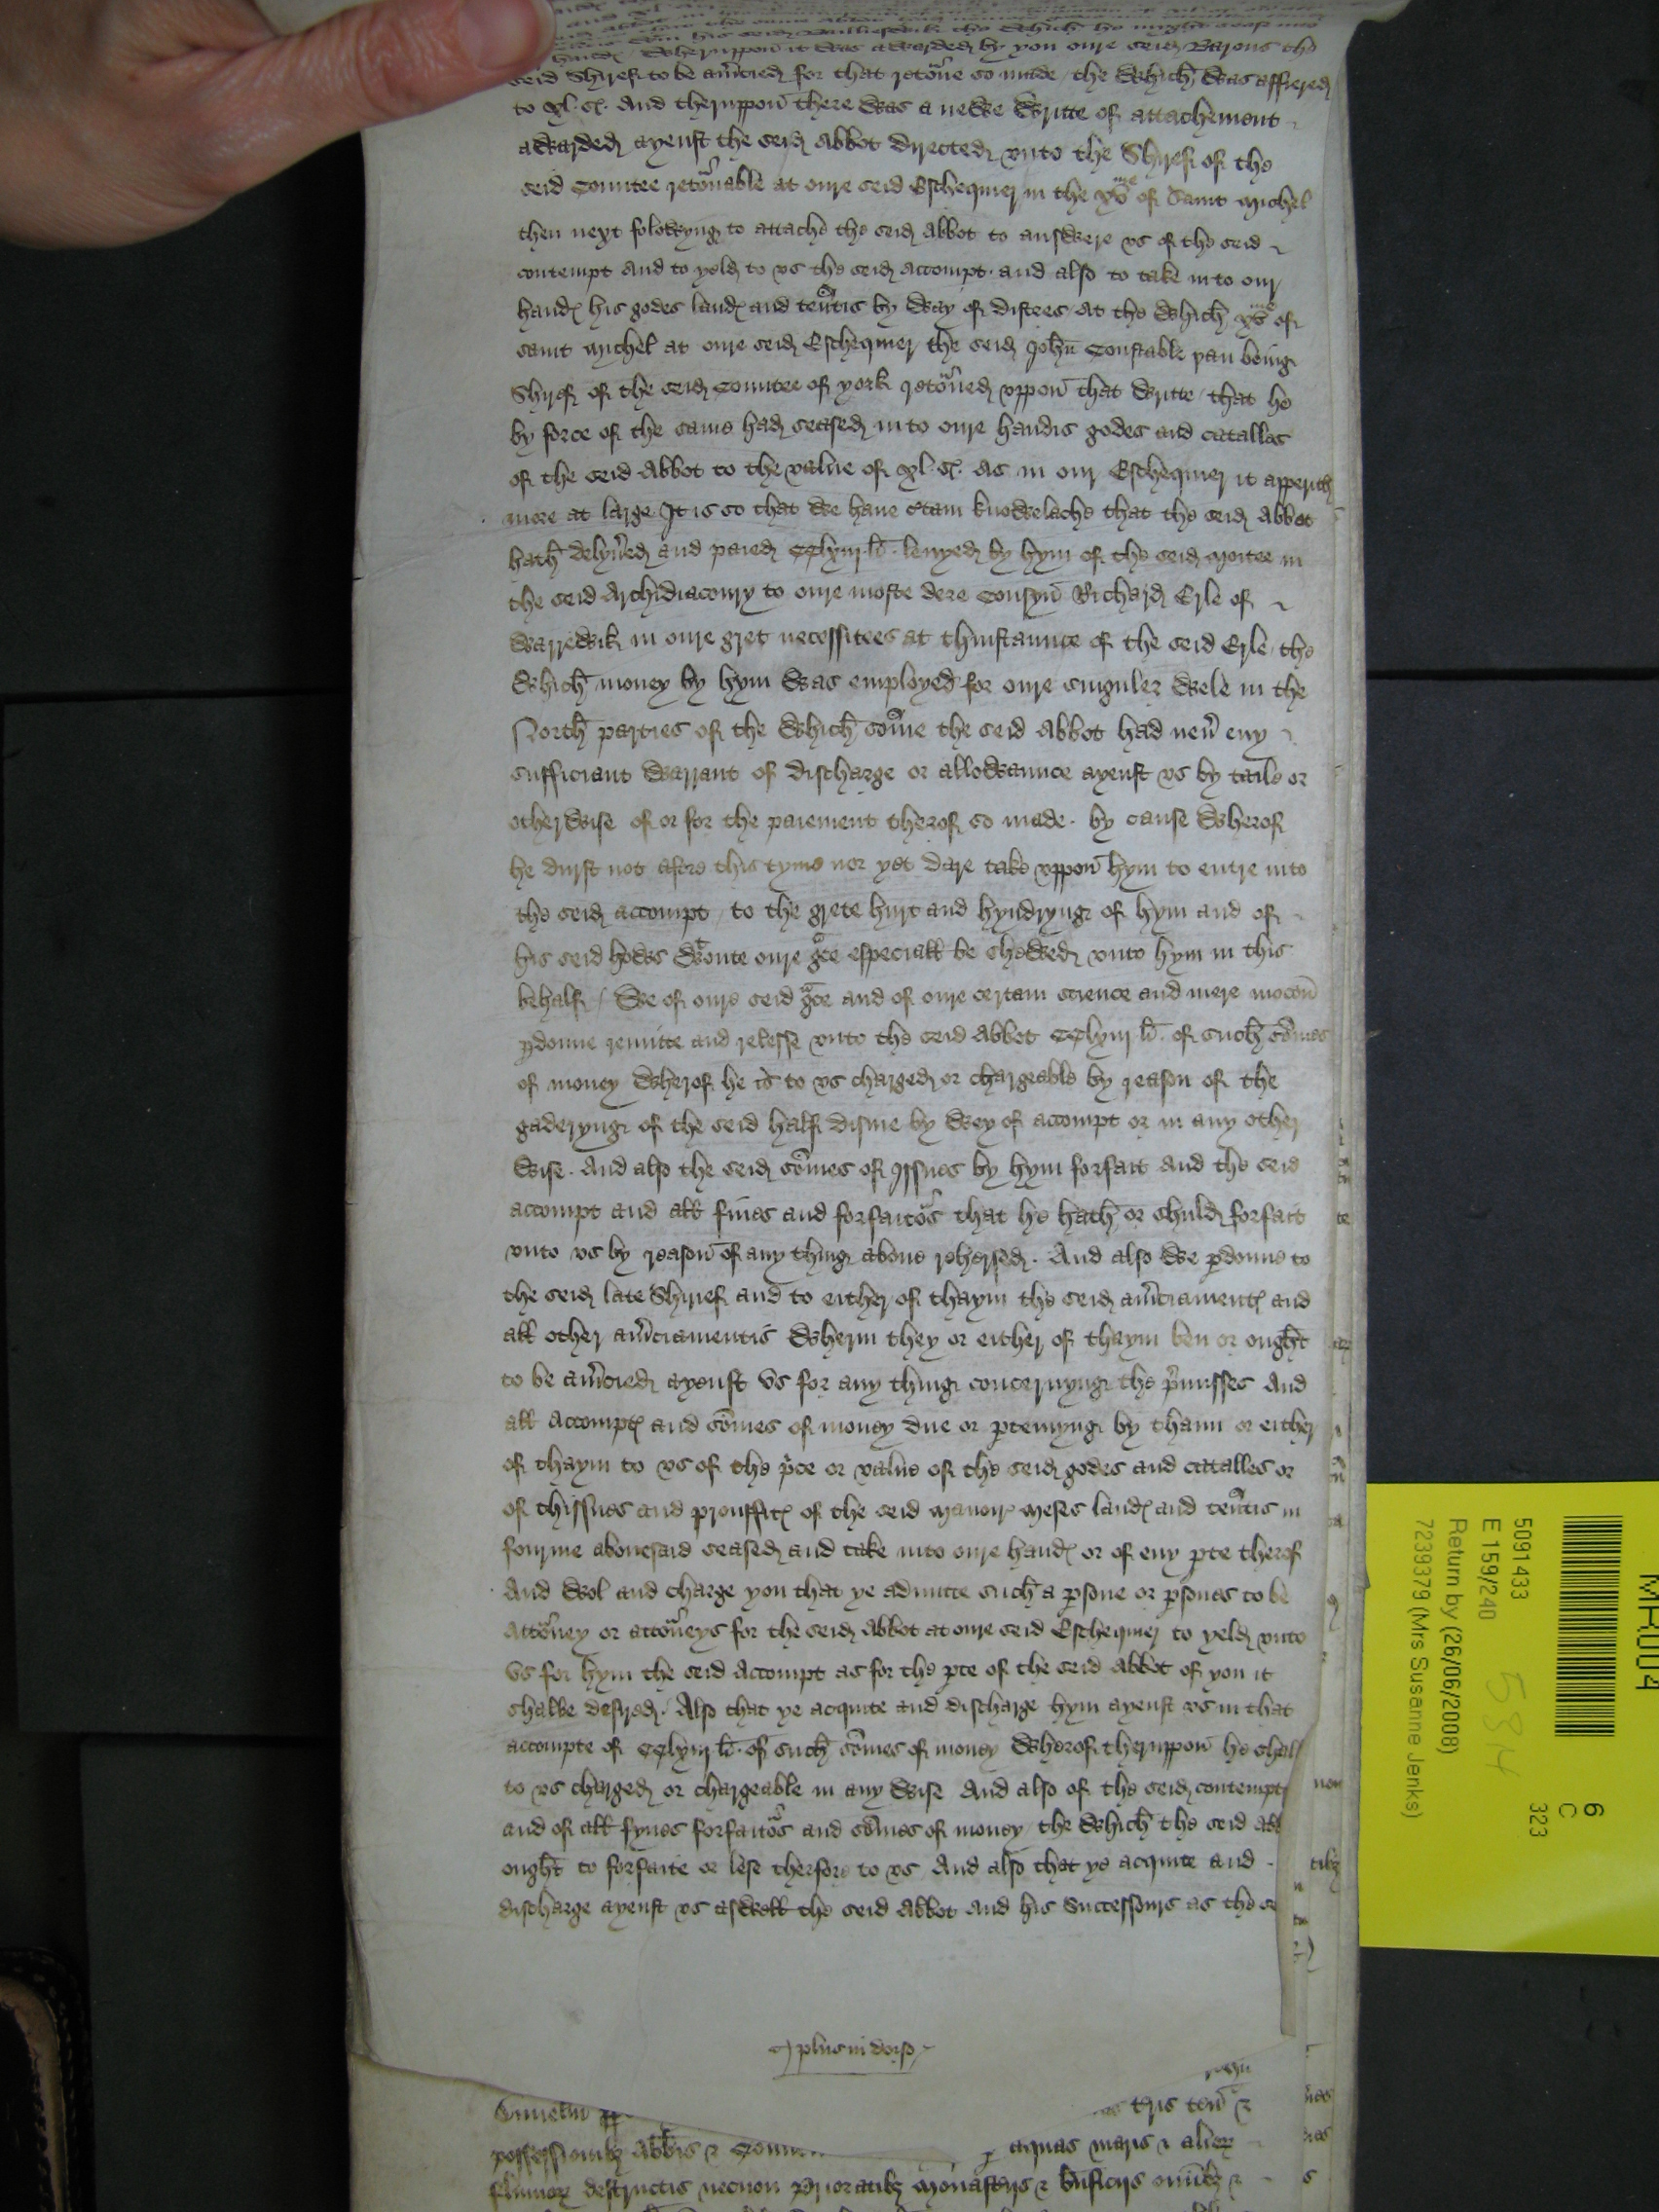 his seid Bailliefwik the which he might
handes Wheruppon it was awarded by you oure seid Barons the
seid Shiref to be am̄cied for that retoͬne so made the which was affiered
to xl. s̄. And theruppon there was a newe writte of attachement
awarded ayenst the seid Abbot directed vnto the Shiref of the
seid Countee retoͬnable at oure seid Eschequier in the xvme of Saint Michel
then next folowyng to attache the seid Abbot to answere vs of the seid
contempt and to yeld to vs the seid accompt. and also to take into our
handes his godes landes and ten̄tis by way of distres At the which xvme of
saint Michel at oure seid Eschequier the seid John̄ Constable þan being
Shiref of the seid Countee of york retoͬned vppon that writte that he
by force of the same had seased into oure handis godes and catalles
of the seid Abbot to the value of xl. s̄. as in our Eschequier it apperith
more at large It is so that we haue c̄tain knowelache that the seid Abbot
hath delyu̾ed and paied CClxiij. li. leuyed by hym of the seid moitee in
the seid Archidiaconry to oure moste dere Cousyn Richard Erle of
Warrewik in oure gret necessitees at thinstaunce of the seid Erle the
which money by hym was employed for oure singuler wele in the
North parties of the which som̄e the seid Abbot had neu̾ eny
sufficiant warrant of discharge or allowaunce ayenst vs by taile or
otherwise of or for the paiement therof so made. by cause wherof
he durst not afore this tyme nor yet dare take vppon hym to entre into
the seid accompt to the grete hurt and hyndryng of hym and of
his seid hows wͭoute oure gᵃce especiall be shewed vnto hym in this
behalf / We of oure seid gᵃce and of oure certain science and mere mocōn
ꝑdonne remitte and relesse vnto the seid Abbot CClxiij. li. of such som̄es
of money wherof he is to vs charged or chargeable by reason of the
gaderyng of the seid half disme by wey of accompt or in any other
wise. And also the seid som̄es of yssues by hym forfait and the seid
accompt and all fines and forfaitoͬs that he hath or shuld forfait
vnto vs by reason of any thing aboue rehersed. And also we ꝑdonne to
the seid late Shiref and to either of thaym the seid am̄ciamentes and
all other am̄ciamentis wherin they or either of thaym ben or ought
to be am̄cied ayenst vs for any thing concernyng the p̾misses And
all accomptes and som̄es of money due or ꝑteinyng by thaim or either
of thaym to vs of the pͥce or value of the seid godes and catalles or
of thissues and prouffites of the seid manoirs meses landes and ten̄tis in
fourme abouesaid seased and take into oure handes or of eny ꝑte therof
And wol and charge you that ye admitte such a ꝑsone or ꝑsones to be
attoͬney or attoͬneys for the seid Abbot at oure seid Eschequier to yeld vnto
vs for hym the seid accompt as for the ꝑte of the seid Abbot of you it
shalbe desired. Also that ye acquite and discharge hym ayenst vs in that
accompte of CClxiij li. of such som̄es of money wherof theruppon he shal
to vs charged or chargeable in any wise And also of the seid contempt
and of all fynes forfaitoͬs and som̄es of money the which the seid Abb
ought to forfaite or lese therfore to vs And also that ye acquite and
discharge ayenst vs aswell the seid Abbot and his Successours as the se
plus in dorso
tris ten̄ &
possessionibꝫ Abb̄is & Conu aquas maris & alioꝝ
fluuioꝝ destructis necnon Prioratibꝫ Monast̾ijs & b̾nficijs
MR004
5091433
E 159/240
Return by (26/06/2008)
7239379 (Mrs Susanne Jenks)
5814
6
C
323